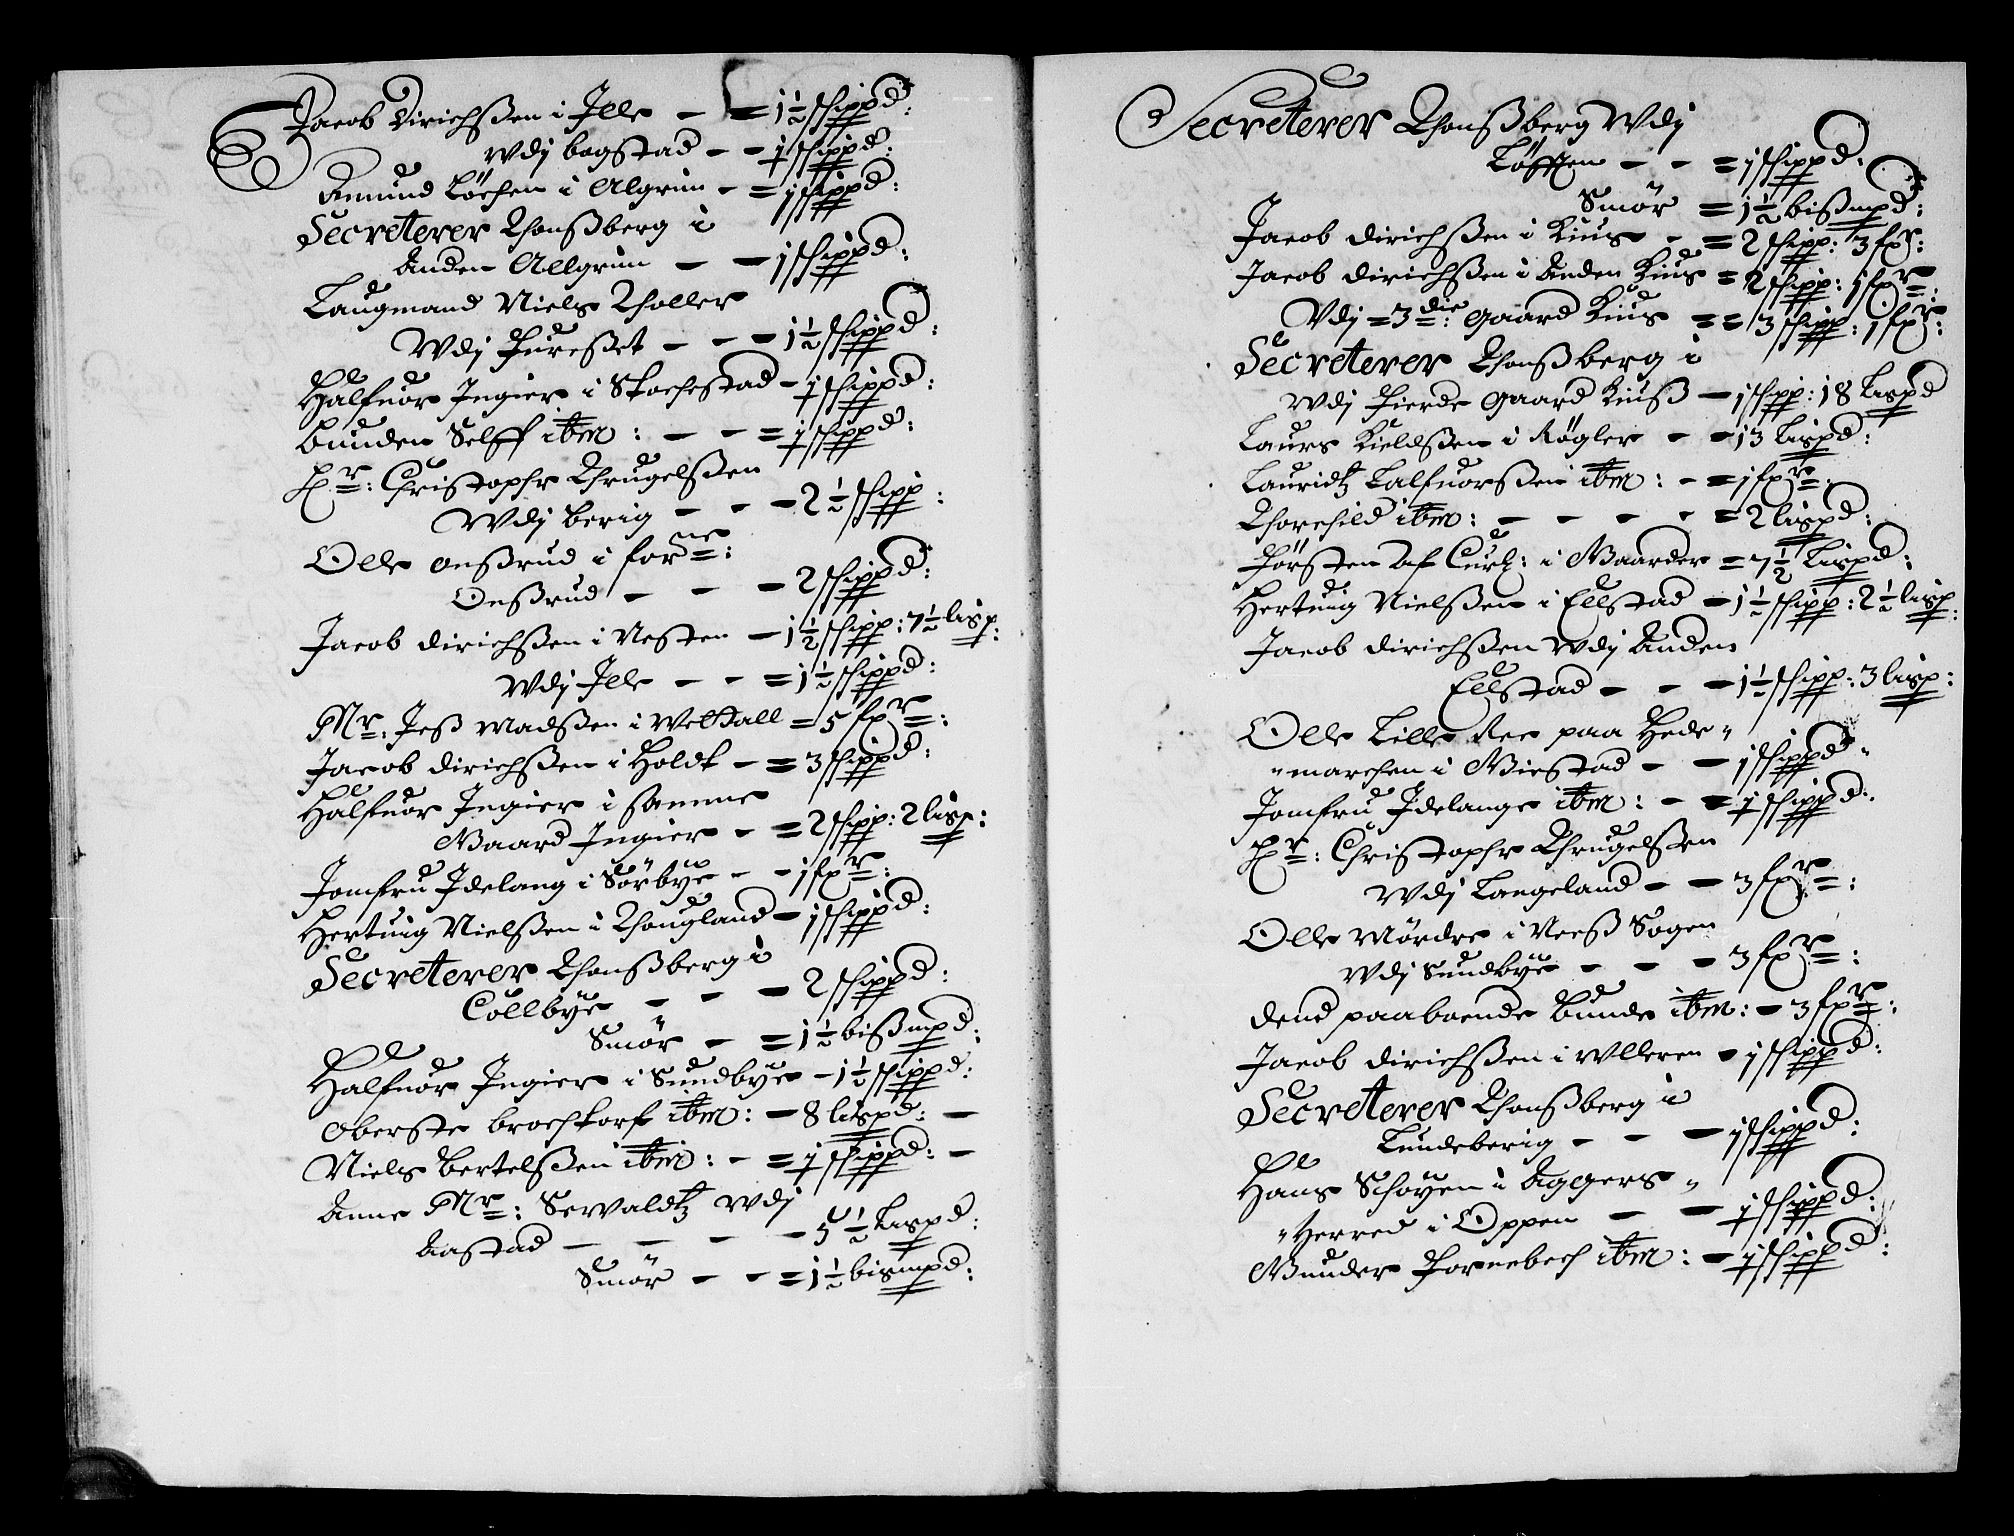 Jacob Dirichsßen i Jlle - = 1½ schippd:
Wdj bogstad - - 1 schippd:
Amund Löchen i Algrim - = 1 schippd:
Secreterer Thonßberg i
Anden Allgrim - - 1 schippd:
Laugmand Niels Tholler
Wdj Fureßet - - - 1½ schippd:
Halfuor Jngier i Stochestad - 1 schippd:
bunden Selff ibm: - - = 1 schippd:
Hr: Christopher Thrugelsßen
Wdj berig - - - 2½ schipp:
Olle Onßrud i forne:
Onßrud - - - 2 schippd:
Jacob dirichsßen i Nesten - 1½ schipp: 7½ lisp:
Wdj Jlle - - = 1½ schippd:
Mr: Jeß Madsßen i Weltall = 5 fxr:
Jacob dirichsßen i Holdt - = 3 schippd:
Halfuor Jngier i samme
Gaard Jngier - = 2 schipp: 2 lisp:
Jomfru Jdelang i Sörbye - - 1 fxr:
Hertuig Nielsßen i Thougland - 1 schippd:
Secreterer Thonßberg i
Collbye - - - 2 schippd:
Smör - = 1½ bißmpd:
Halfuor Jngier i Sundbye - 1½ schippd:
Oberste brochtorf ibm: - 8 lispd: -
Niels Bertelsßen ibm: - = 1 schippd: -
Anne Mr: Sewaldtz Wdj
Aastad - - - - 5½ Lispd:
Smör - - = 1½ bismpd:
Secreterer Thonßberg Wdj
Löfften - - = 1 schippd:
Smör = 1½ bißmpd:
Jacob dirichsßen i Kius - = 2 schipp: 3 fxr:
Jacob dirichsßen i Anden Kius = 2 schipp: 1 fxr:
Wdj = 3die: Gaard Kius = = 3 schipp: 1 fxr:
Secreterer Thonßberg i
Wdj Fierde Gaard Kiuß - 1 schipp: 18 Lispd
Laurs Kieldsßen i Røgler - - 13 Lispd:
Lauridtz Halfuorsßen ibm: - = 1 fxr:
Thorchild ibm: - - - - = 2 lispd:
Törsten Af Curl: i Gaarder = 7½ Lispd:
Hertuig Nielsßen i Ellstad - 1½ schipp: 2½ lisp:
Jacob dirichsßen Wdj Anden
Ellstad - - - 1½ schipp: 3 lisp:
Olle Lille Ree paa Hede"
"marchen i Miestad - - 1 schippd"
Jomfru Jdelange ibm: - = 1 schippd:
Hr: Christopher Thrugelsßen
Wdj Langeland - - 3 fxr:
Olle Mördre i Neeß Sogen
Wdj Sundbye - - - 3 fxr:
dend paaboende bunde ibm: - 3 fxr:
Jacob dirichsßen i Ulleren - 1 schippd:
Secreterer Thonßberg i
Lundeberig - - - 1 schippd:
Hans Schøyen i Aggers"
"Herred i Oppen - - 1 schippd:
Gunder Fornebech ibm: - 1 schippd: